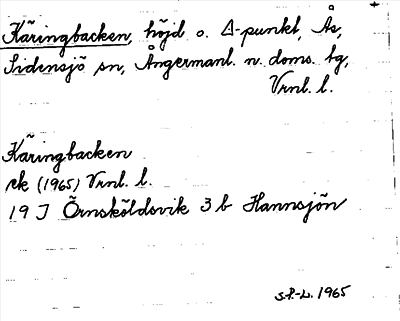 Käringbacken, höjd o. Δ-punkt, Ås,
Sidensjö sn, Ångermanl. n. doms. tg,
Vrnl. l.
Käringbacken
rk (1965) Vrnl. l.
19 J Örnsköldsvik 3 b Hannsjön
S.P.-L. 1965